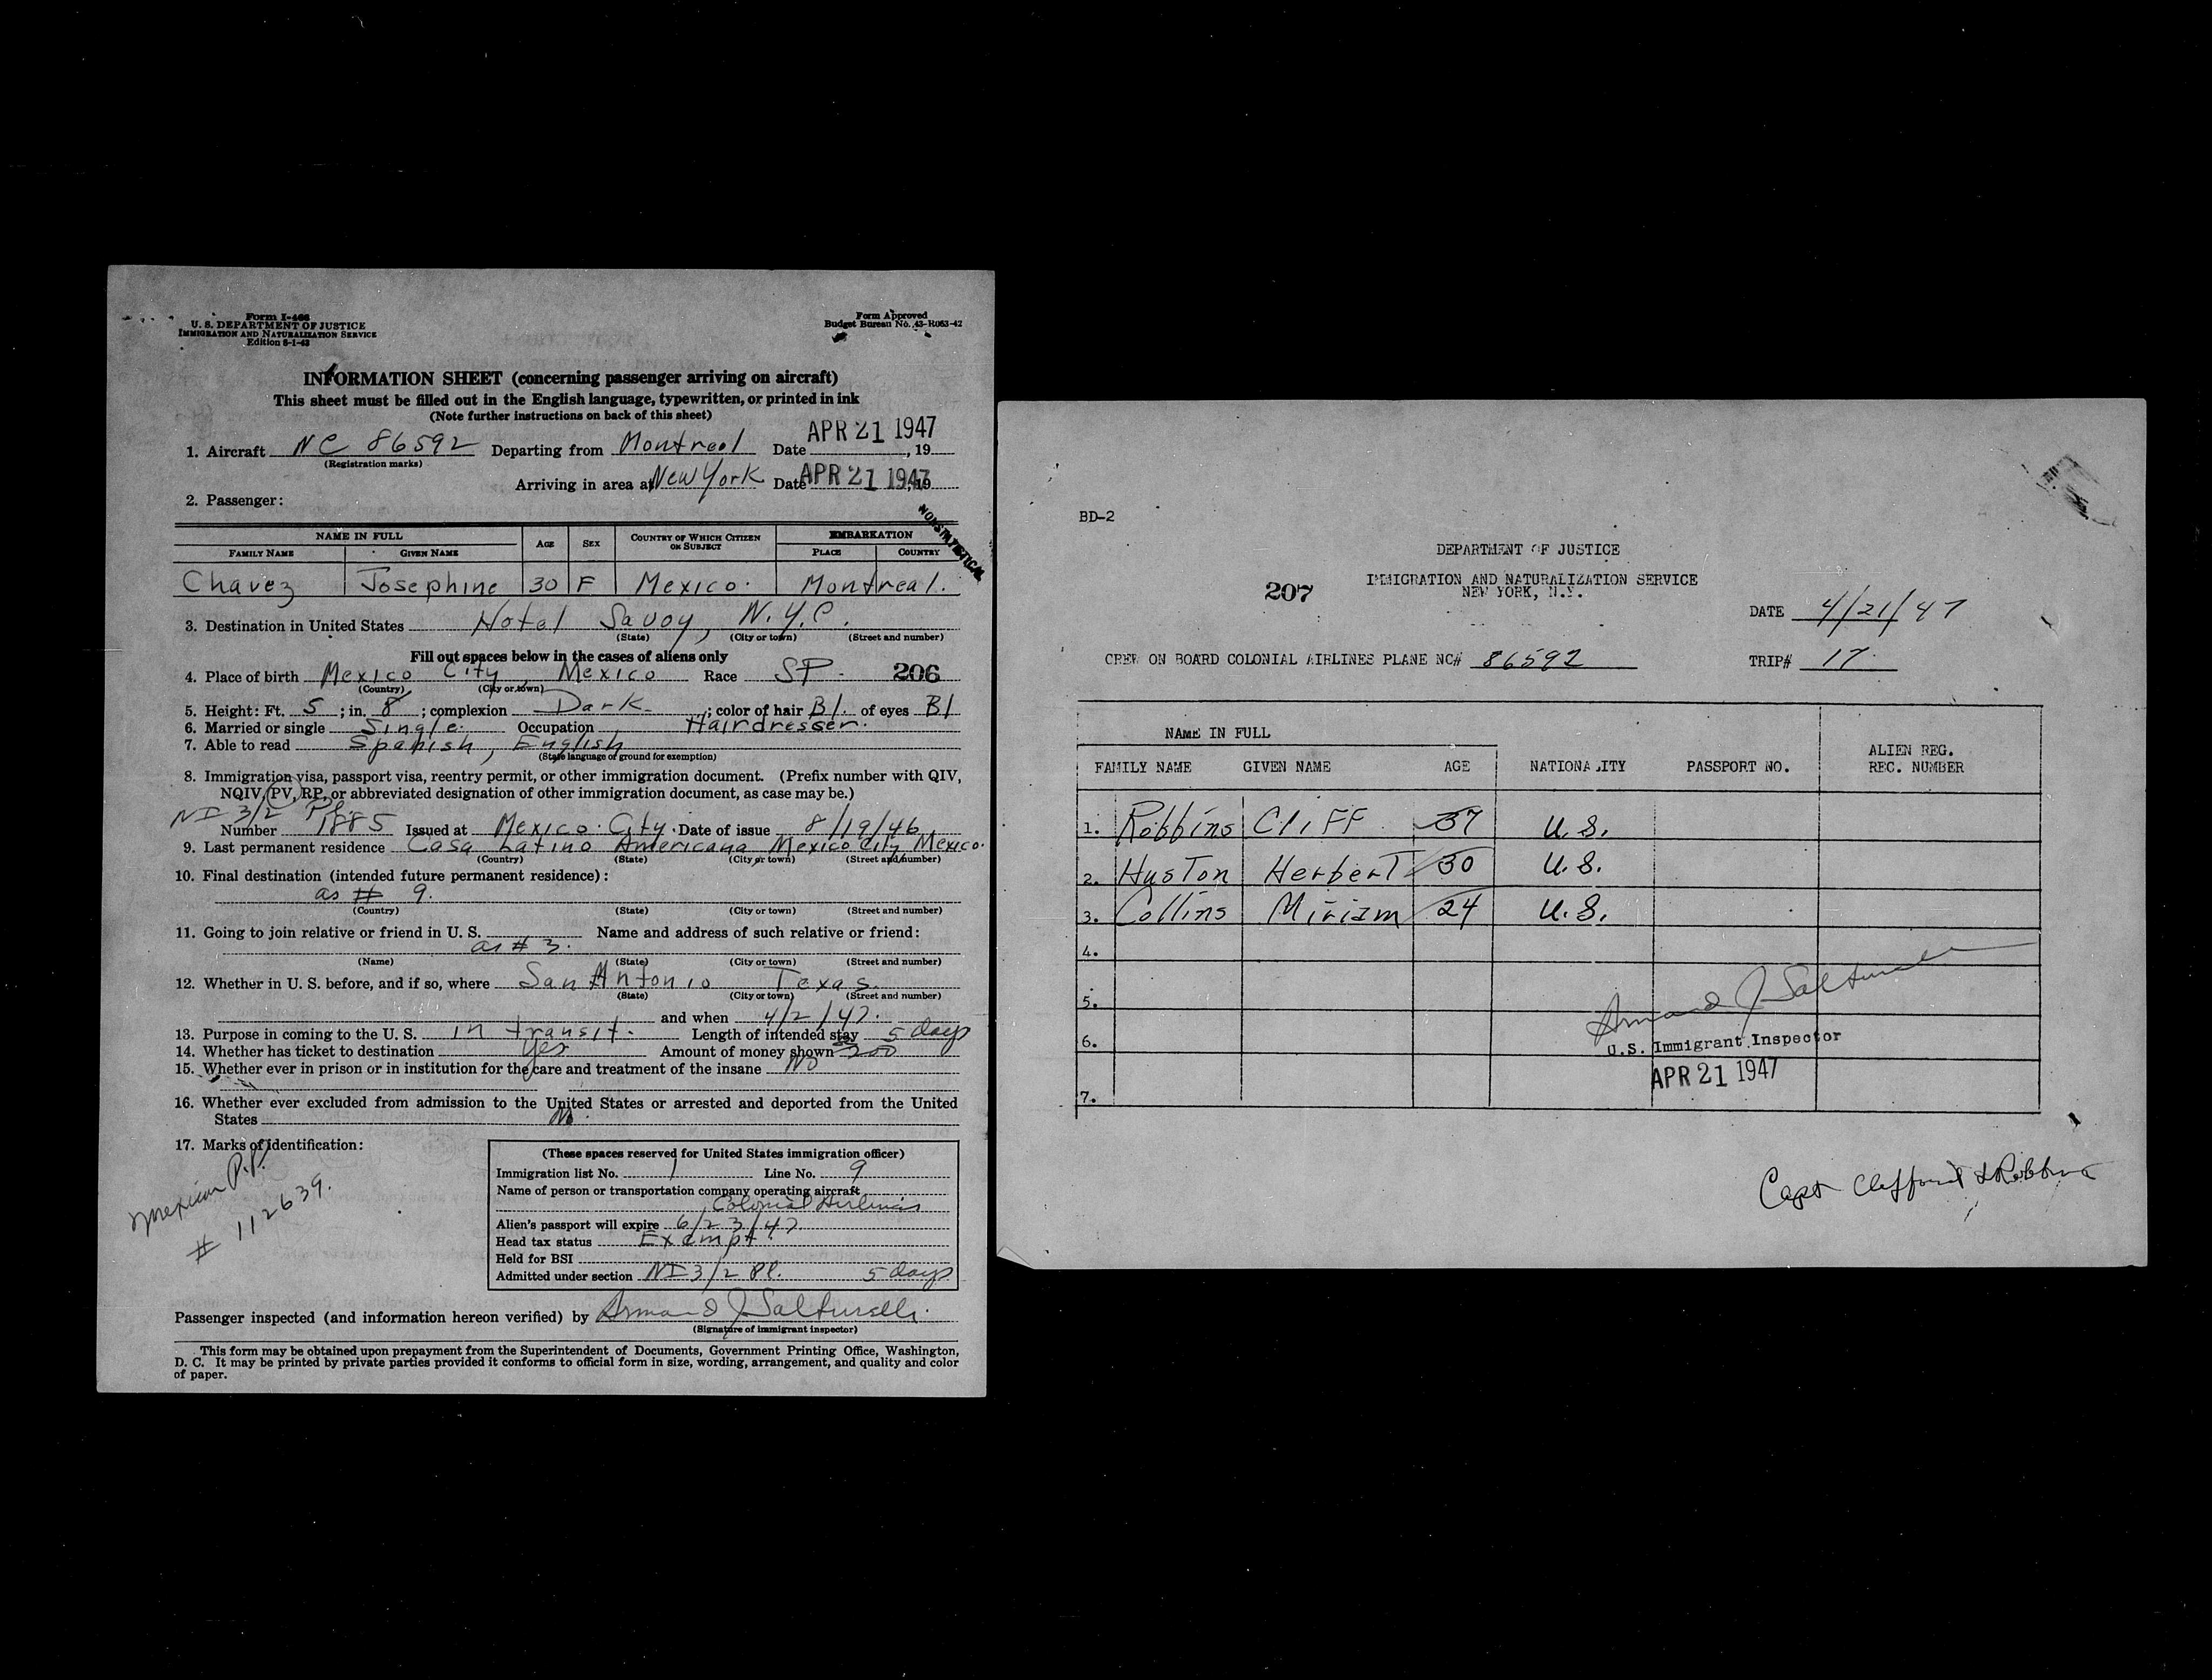 Form I-466
U. S. DEPARTMENT OF JUSTICE
IMMIGRATION AND NATURALIZATION SERVICE
Edition 6-1-43
Form Approved
Budget Bureau No. 43-R063-42
INFORMATION SHEET (concerning passenger arriving on aircraft)
This sheet must be filled out in the English language, typewritten, or printed in ink
(Note further instructions on back of this sheet)
1. Aircraft NC 86592 Departing from Montreal Date APR 21 1947, 19
(Registration marks)
Arriving in area at New York Date APR 21 1947, 19
2. Passenger:
NONSTATISTICAL
NAME IN FULL AGE SEX COUNTRY OF WHICH CITIZEN OR SUBJECT EMBARKATION
FAMILY NAME GIVEN NAME PLACE COUNTRY
Chavez Josephine 30 F Mexico. Montreal.
3. Destination in United States Hotel Savoy, N.Y.C.
(State) (City or town) (Street and number)
Fill out spaces below in the cases of aliens only
4. Place of birth Mexico City, Mexico Race SP. 206
(Country) (City or town)
5. Height: Ft. 5; in. 8; complexion Dark; color of hair Bl. of eyes Bl
6. Married or single Single. Occupation Hairdresser.
7. Able to read Spanish, English
(State language or ground for exemption)
8. Immigration visa, passport visa, reentry permit, or other immigration document. (Prefix number with QIV,
NQIV, PV, RP, or abbreviated designation of other immigration document, as case may be.)
NI 3/2 Pl.
Number 1885 Issued at Mexico City. Date of issue 8/19/46
9. Last permanent residence Casa Latino Americana Mexico City Mexico.
(Country) (State) (City or town) (Street and number)
10. Final destination (intended future permanent residence):
as # 9.
(Country) (State) (City or town) (Street and number)
11. Going to join relative or friend in U. S. Name and address of such relative or friend:
as # 3.
(Name) (State) (City or town) (Street and number)
12. Whether in U. S. before, and if so, where San Antonio Texas.
(State) (City or town) (Street and number)
and when 4/2/47.
13. Purpose in coming to the U. S. in transit. Length of intended stay 5 days
14. Whether has ticket to destination Yes Amount of money shown 200
15. Whether ever in prison or in institution for the care and treatment of the insane No
16. Whether ever excluded from admission to the United States or arrested and deported from the United
States No.
17. Marks of identification:
Mexican P.P.
# 112639.
(These spaces reserved for United States immigration officer)
Immigration list No. 1 Line No. 9
Name of person or transportation company operating aircraft
Colonial Airlines
Alien's passport will expire 6/23/47.
Head tax status Exempt.
Held for BSI
Admitted under section NI 3/2 Pl. 5 days
Passenger inspected (and information hereon verified) by Armand J Salturelli
(Signature of immigrant inspector)
This form may be obtained upon prepayment from the Superintendent of Documents, Government Printing Office, Washington,
D. C. It may be printed by private parties provided it conforms to official form in size, wording, arrangement, and quality and color
of paper.
BD-2
DEPARTMENT OF JUSTICE
207 IMMIGRATION AND NATURALIZATION SERVICE
NEW YORK, N.Y.
DATE 4/21/47
CREW ON BOARD COLONIAL AIRLINES PLANE NC# 86592 TRIP# 17
NAME IN FULL
FAMILY NAME GIVEN NAME AGE NATIONALITY PASSPORT NO. ALIEN REG. REC. NUMBER
1. Robbins Cliff 37 U.S.
2. Huston Herbert 30 U.S.
3. Collins Miriam 24 U.S.
4.
5.
Armand J Salturelli
6.
U.S. Immigrant Inspector
APR 21 1947
7.
Capt Clifford L Robbins